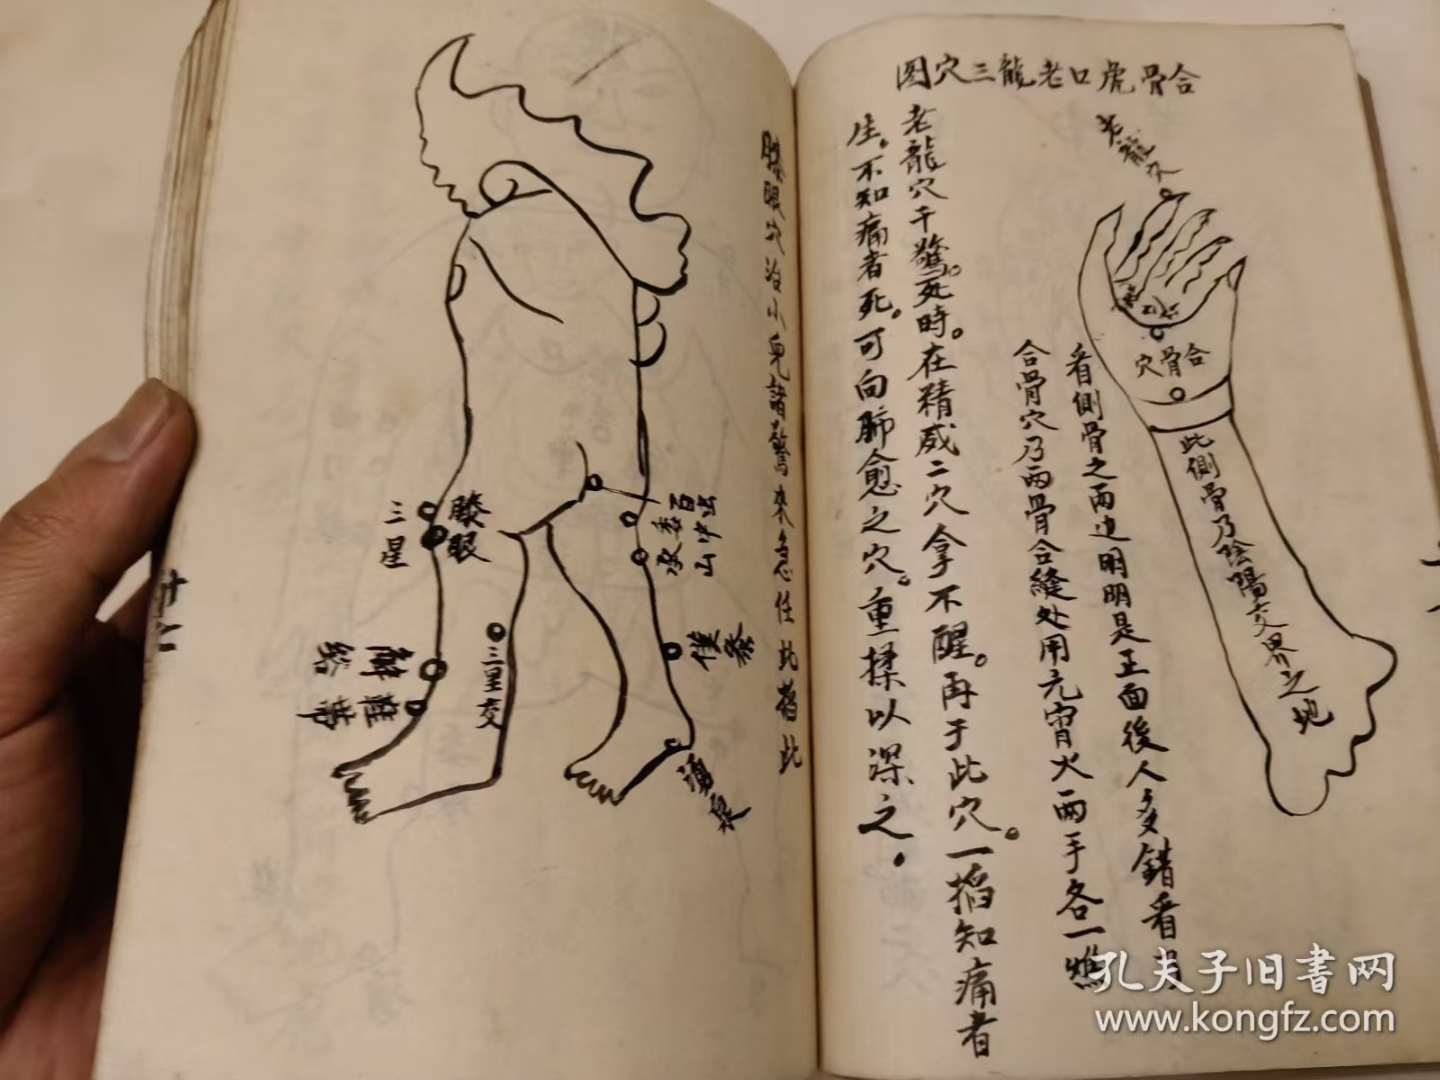 合骨虎口老龍三穴图
老龍穴
合骨穴
此側骨乃陰陽交界之地
看側骨之両边明明是正面後人多錯看
合骨穴乃両骨合縫处用元宵火両手各一燋
老龍穴干驚死時。在精威二穴拿不醒。再于此穴。一搯知痛者
生。不知痛者死。可向肺愈之穴。重揉以深之。
膝眼穴治小児諸驚來急住此搯此
百虫
委中
承山
膝眼
三星
僕參
三里交
解谿
鞋帶
湧泉
廿二
孔夫子旧書网
www.kongfz.com